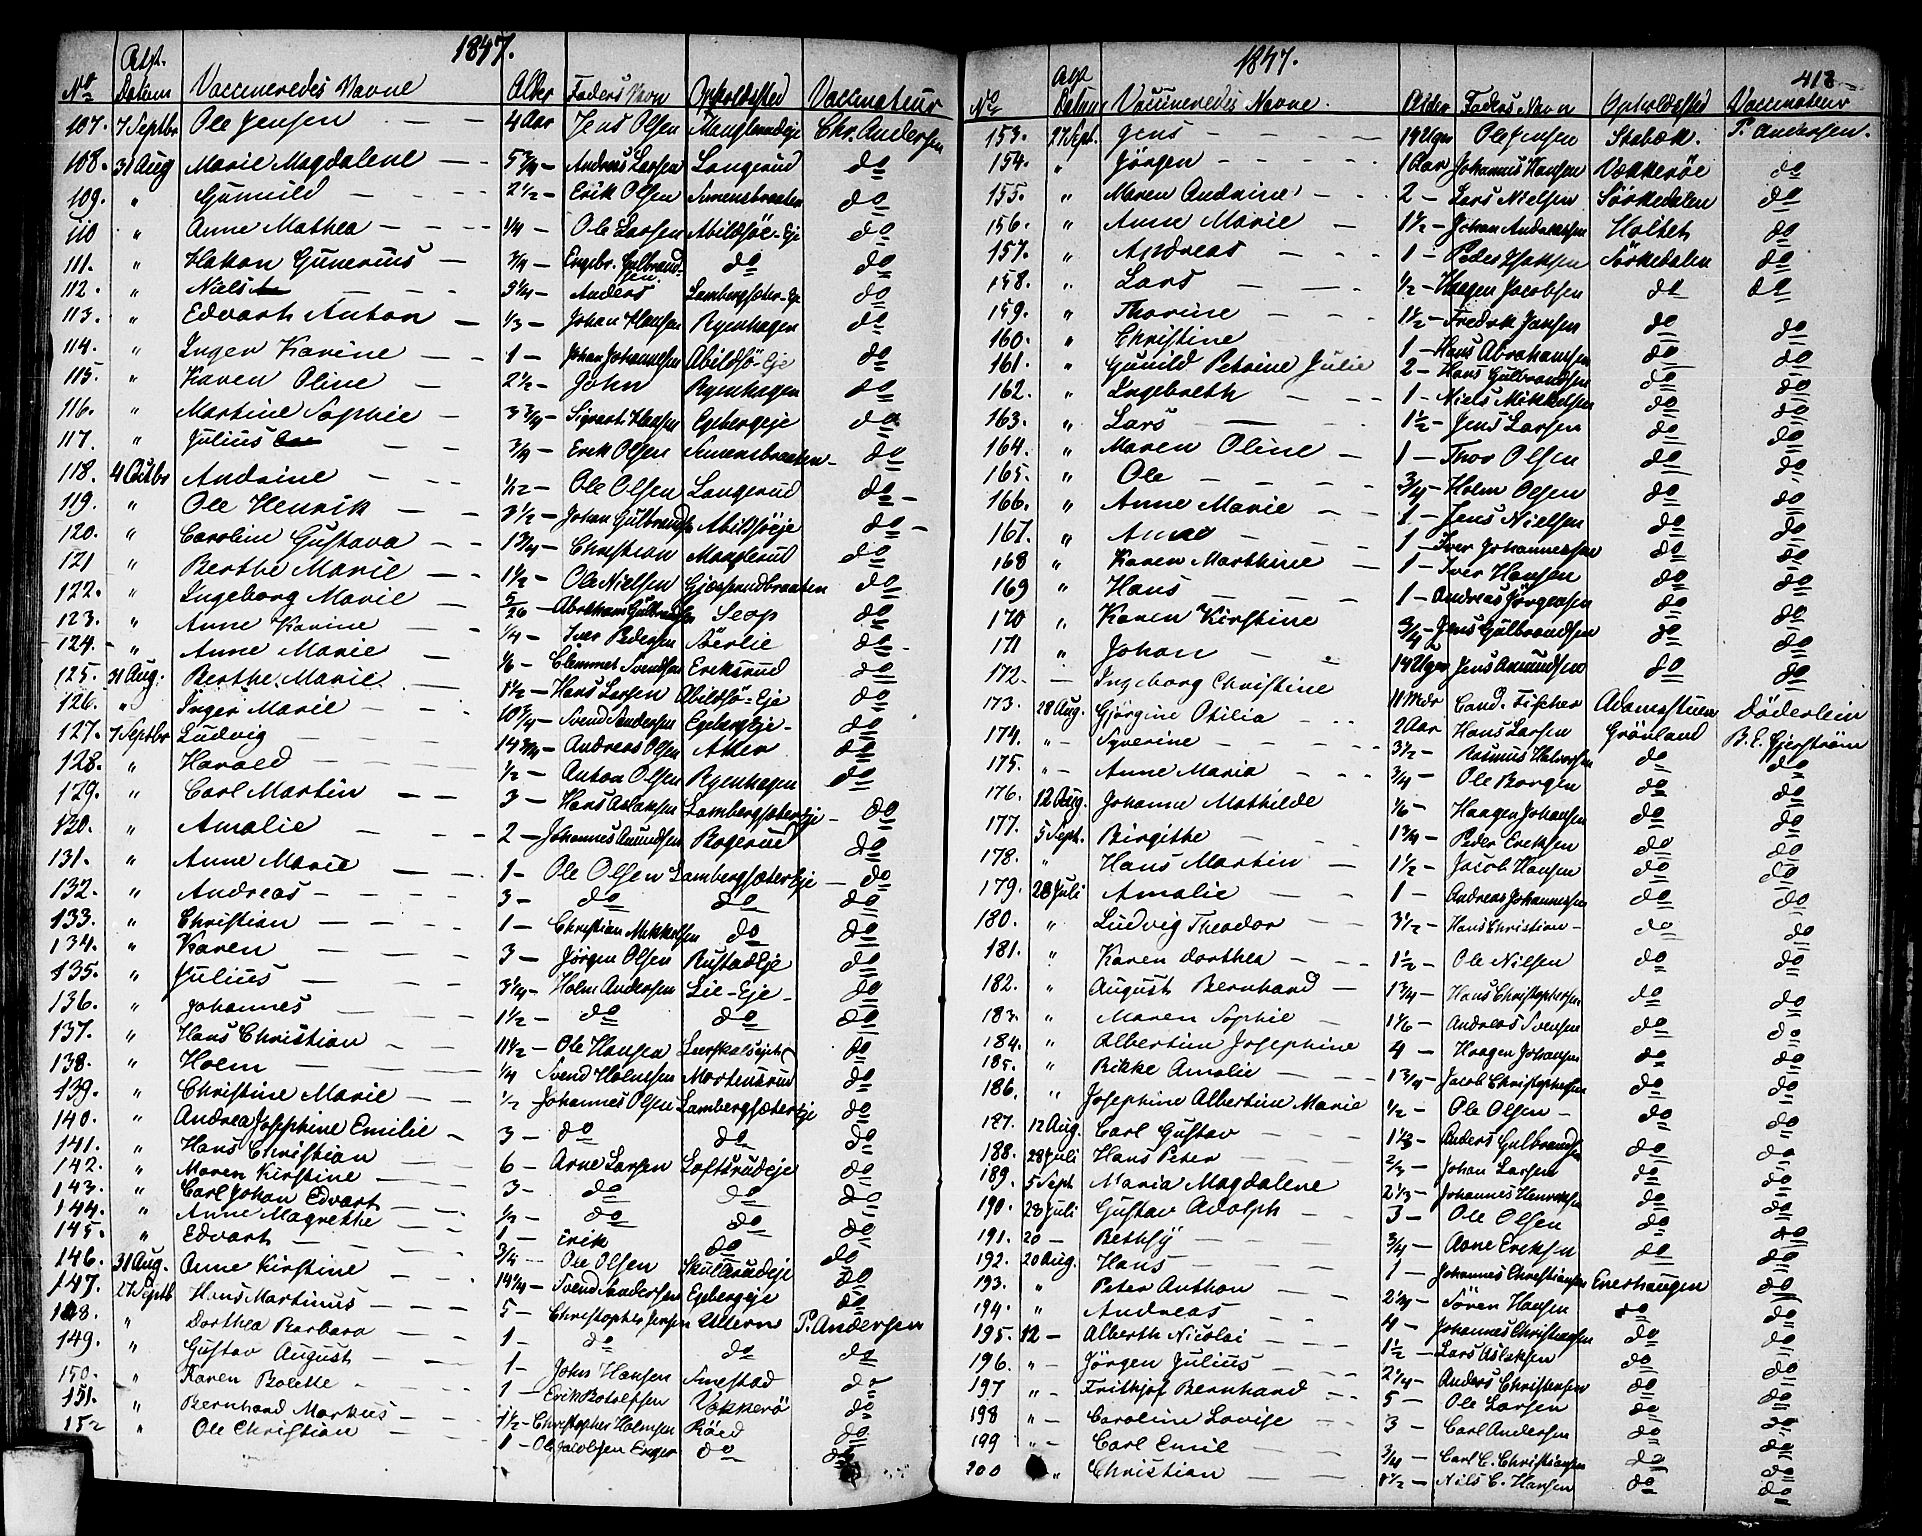 1847.
No Attst. Datum Vaccineredes Navne Alder Faders Navn Opholdssted Vaccinateur
107. 7 Septbr Ole Jensen — — 4 Aar Jens Olsen Manglerudeje Chr. Andersen
108. 31 Aug Marie Magdalene — 5 3/4 — Andreas Larsen Langerud do
109. " Gunnild — 2 1/2 — Erik Olsen Simensbraaten do
110 " Anne Mathea — 1/4 — Ole Larsen Abildsöe-Eje do
111. " Hakon Gunerius — 3/4 — Engebr. Gulbrandsen do do
112. " Niels — 5 1/4 — Anders Lambergsæter-Eje do
113. " Edvart Anton — 1/3 — Johan Hansen Ryenhagen do
114. " Inger Karine — 1 — Johan Johannesen Abildsö-Eje do
115. " Karen Oline — 2 1/2 — John Ryenhagen do
116. " Martine Sophie — 3 3/4 — Sigvart Hansen Egebergeje do
117. " Julius — 3/4 — Erik Olsen Simensbraaten do
118. 4 Octbr Andrine — 1/12 — Ole Olsen Langerud do
119. " Ole Henrik — 3 1/2 — Johan Gulbrands. Abildsöeje do
120. " Caroline Gustava — 1 3/4 — Christian Manglerud do
121 " Berthe Marie — 1 1/2 — Ole Nielsen Gjøsrudbraaten do
122. " Ingeborg Marie — 5/26 — Abraham Gulbrandsen do
123. " Anne Karine — 1/4 — Iver Pedersen do
124. " Anne Marie — 1/6 — Clemmet Svendsen Eriksrud do
125. 31 Aug. Berthe Marie — 1 1/2 — Hans Larsen Abildsö-Eje do
126. " Inger Marie — 10 3/4 — Svend Andersen Egeberg Eje do
127. 7 Septbr Ludvig — 14 3/4 — Andreas Olsen Aker do
128. " Harald — 1/2 — Anton Olsen Ryenhagen do
129. " Carl Martin — 3 — Hans Aslaksen Lambergsæter Eje do
130. " Amalie — 2 — Johannes Amundsen Bogerud do
131. " Anne Marie — 1 — Ole Olsen Lambergsæter Eje do
132. " Andreas — 3 — do do do
133. " Christian — 1 — Christian Mikkelsen do do
134. " Karen — 3 — Jörgen Olsen Rustad Eje do
135. " Julius — 3 1/4 — Holm Andersen Lie-Eje do
136. " Johannes — 1 1/2 — do do do
137. " Hans Christian — 11 1/2 — Ole Hansen do
138. " Holm — 1/4 Svend Holmsen Mortensrud do
139. " Christine Marie — 1/2 — Johannes Olsen Lambergsæter Eje do
140. " Andrea Josephine Emilie — 3 — do do do
141. " Hans Christian — 6 — Arne Larsen Loftsrudeje do
142. " Maren Kirstine — 3 — do do do
143. " Carl Johan Edvart — 1/2 — do do do
144. " Anne Magrethe — 1 — Erik do do
145. " Edvart — 3/4 — Ole Olsen Skullerudeje do
146. 31 Aug. Anne Kirstine — 14 1/4 — Svend Andersen Egebergeje do
147. 27 Septb Hans Martinus — 5 — Christopher Jensen Ullern P. Andersen
148. " Dorthea Barbara — 1 — do do do
149. " Gustav August — 1 — John Hansen Smestad do
150. " Karen Bolette — 1 — Erik Botolfsen Vækkerö do
151. " Bernhard Markus — 1 1/2 — Christopher Holmsen Röed do
152 " Ole Christian — 1 — Ole Jacobsen Enger do do
1847.
413
No Atst Datum Vaccineredes Navne. Alder Faders Navn Opholdssted Vaccinateur
153. 27 Sept. Jens — 14 Uger Ole Jensen Stabæk. P. Andersen.
154. " Jörgen — 1 Aar Johannes Hansen Vækkeröe do
155. " Maren Andrine — 2 — Lars Nielsen Sörkedalen do
156. " Anne Marie — 1 1/2 — Johan Andreassen Holtet do
157. " Andreas — 1 — Peder Isaksen Sörkedalen do
158. " Lars — 1/2 — Haagen Jacobsen do do
159. " Thorine — 1 1/2 — Fredrk Jansen do do
160. " Christine 1 — Hans Abrahamsen do do
161. " Gunild Petrine Julie 2 — Hans Gulbrandsen do do
162. " Ingebreth — 1 — Niels Mikkelsen do do
163. " Lars — 1 1/2 — Jens Larsen do do
164. " Maren Oline — 1 — Thor Olsen do do
165. " Ole — 3/4 — Holm Olsen do do
166. " Anne Marie — 1 — Jens Nielsen do do
167. " Anne — 1 — Iver Johannessen do do
168 " Karen Marthine — 1 — Iver Hansen do do
169 " Hans — 1 — Andreas Jörgensen do do
170 " Karen Kirstine 3/4 — Jens Gulbrandsen do do
171 " Johan — 14 Uger Jens Amundsen do do
172. — Ingeborg Christine 11 Mdr Cand. Fischer Adamstuen Döderlein
173. 28 Aug. Gjörgine Otilia — 2 Aar Hans Larsen Grönland B. E. Gjerström
174. " Syverine — 3 1/2 — Rasmus Halvorsen do do
175. " Anne Maria — 3/4 — Ole Borgen do do
176. 12 Aug. Johanne Mathilde 1/6 — Haagen Johansen do do
177. 5 Sept. Birgithe — 1 3/4 — Peder Eriksen do do
178. " Hans Martin — 1 1/2 — Jacob Hansen do do
179. 28 Juli Amalie — 1 — Andreas Johannessen do do
180. " Ludvig Theodor — 3 1/2 — Hans Christian — do do
181. " Karen Dorthea — 1 1/2 — Ole Nilsen do do
182. " August Bernhard — 1 3/4 — Hans Christophersen do do
183. " Maren Sophie — 1 1/6 — Andreas Svensen do do
184. " Albertine Josephine 4 — Haagen Johansen do do
185. " Rikke Amalie — 1 3/4 — Jacob Christophersen do do
186. " Josephine Albertine Marie 1/2 — Ole Olsen — do do
187. 12 Aug. Carl Gustav — 1 1/3 — Anders Gulbrandsen do do
188. 28 Juli Hans Peter — 2/3 — Johan Larsen do do
189. 5 Sept Maria Magdalene 2 1/3 — Johannes Henriksen do do
190. 28 Juli Gustav Adolph — 3 — Ole Olsen do do
191. 20 — Bethsy — 3/4 — Arne Eriksen do do
192. 20 Aug. Hans — 1 — Johannes Christiansen Enerhaugen do
193. " Peter Anthon — 2 1/4 — Sören Hansen do do
194. " Andreas — 4 — Johannes Christiansen do do
195. 12 — Alberth Nicolai — 1 1/2 — Lars Aslaksen do do
196. " Jörgen Julius — 2 1/4 — Anders Christensen do do
197 " Frithjof Bernhard — 5 — Ole Larsen do do
198 " Caroline Lovise — 3 — Carl Andersen do do
199 " Carl Emil — 3/4 — Carl C. Christiansen do do
200 " Christian — 1 1/2 — Nils C. Hansen do do